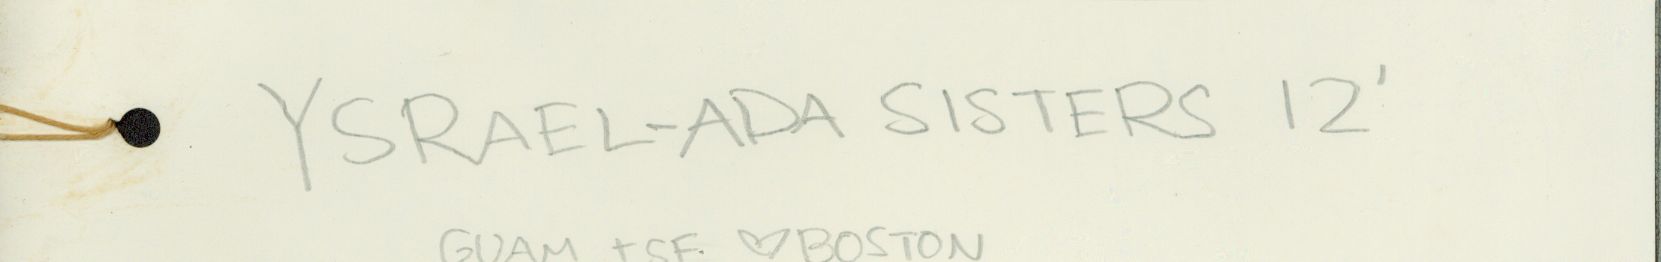 YSRAEL-ADA SISTERS 12'
GUAM + SF. ♡ BOSTON